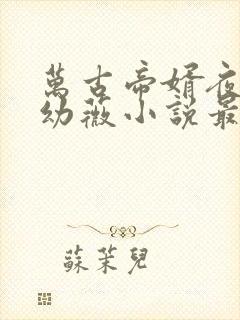 萬古帝婿夜
幼薇小說最
蘇茉兒